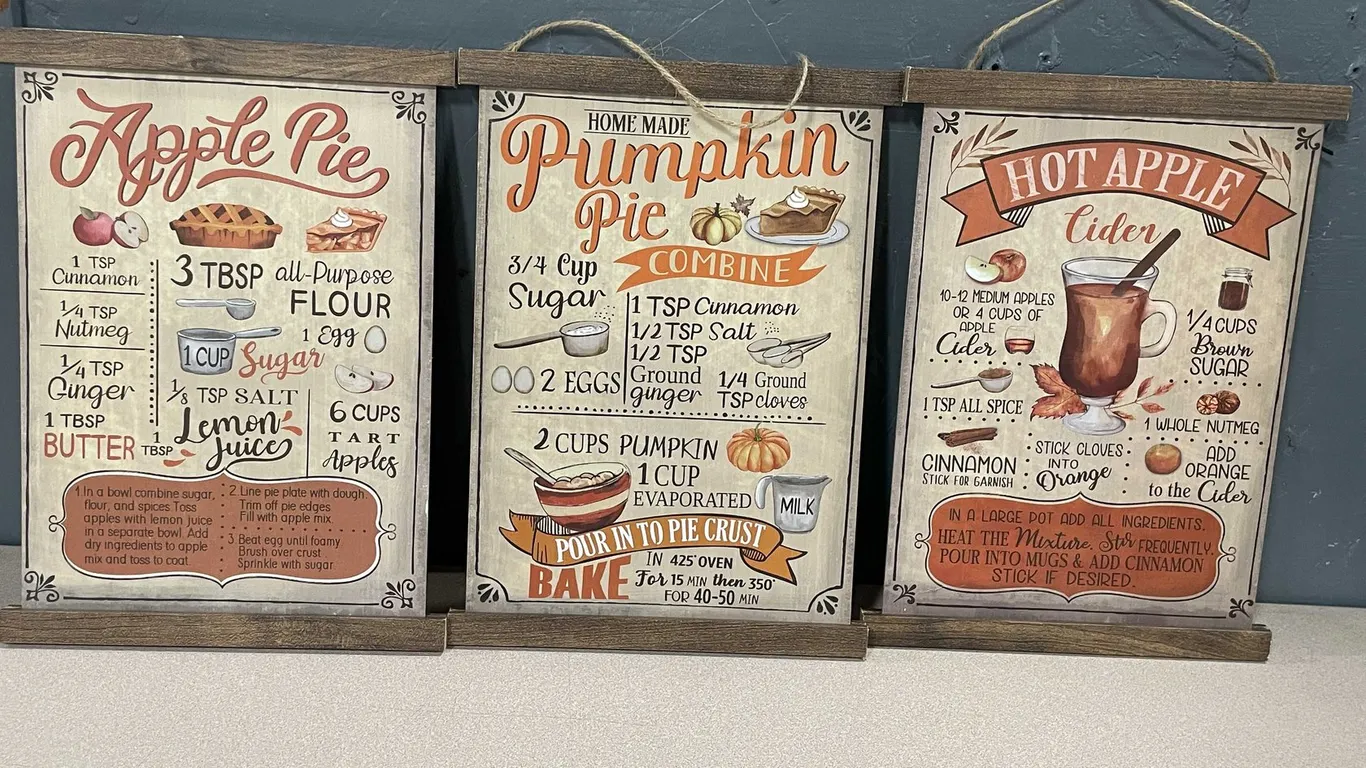 Apple Pie
1 TSP
Cinnamon
1/4 TSP
Nutmeg
1/4 TSP
Ginger
1 TBSP
BUTTER
3 TBSP all-Purpose
FLOUR
1 Egg
1 CUP Sugar
1/8 TSP SALT
1 TBSP Lemon
Juice
6 CUPS
TART
Apples
1. In a bowl combine sugar,
flour, and spices Toss
apples with lemon juice
in a separate bowl. Add
dry ingredients to apple
mix and toss to coat.
2. Line pie plate with dough.
Trim off pie edges
Fill with apple mix.
3. Beat egg until foamy
Brush over crust
Sprinkle with sugar
HOME MADE
Pumpkin
Pie
COMBINE
3/4 Cup
Sugar
2 EGGS
1 TSP Cinnamon
1/2 TSP Salt
1/2 TSP
Ground
ginger
1/4 Ground
TSP cloves
2 CUPS PUMPKIN
1 CUP
EVAPORATED
MILK
POUR IN TO PIE CRUST
BAKE
IN 425° OVEN
For 15 MIN then 350°
FOR 40-50 MIN
HOT APPLE
Cider
10-12 MEDIUM APPLES
OR 4 CUPS OF
APPLE
Cider
1 TSP ALL SPICE
CINNAMON
STICK FOR GARNISH
1/4 CUPS
Brown
SUGAR
1 WHOLE NUTMEG
STICK CLOVES
INTO
Orange
ADD
ORANGE
to the Cider
IN A LARGE POT ADD ALL INGREDIENTS.
HEAT THE Mixture. Stir FREQUENTLY.
POUR INTO MUGS & ADD CINNAMON
STICK IF DESIRED.